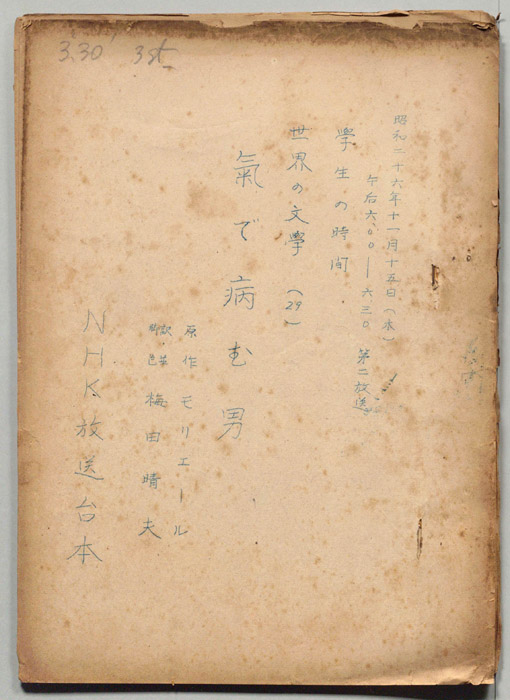 3.30' 3st
昭和二十六年十一月十五日(木)
午后六.00—六.三0 第二放送
學生の時間.
世界の文學 (29)
氣で病む男
原作 モリエール
脚色 梅田晴夫
NHK放送台本